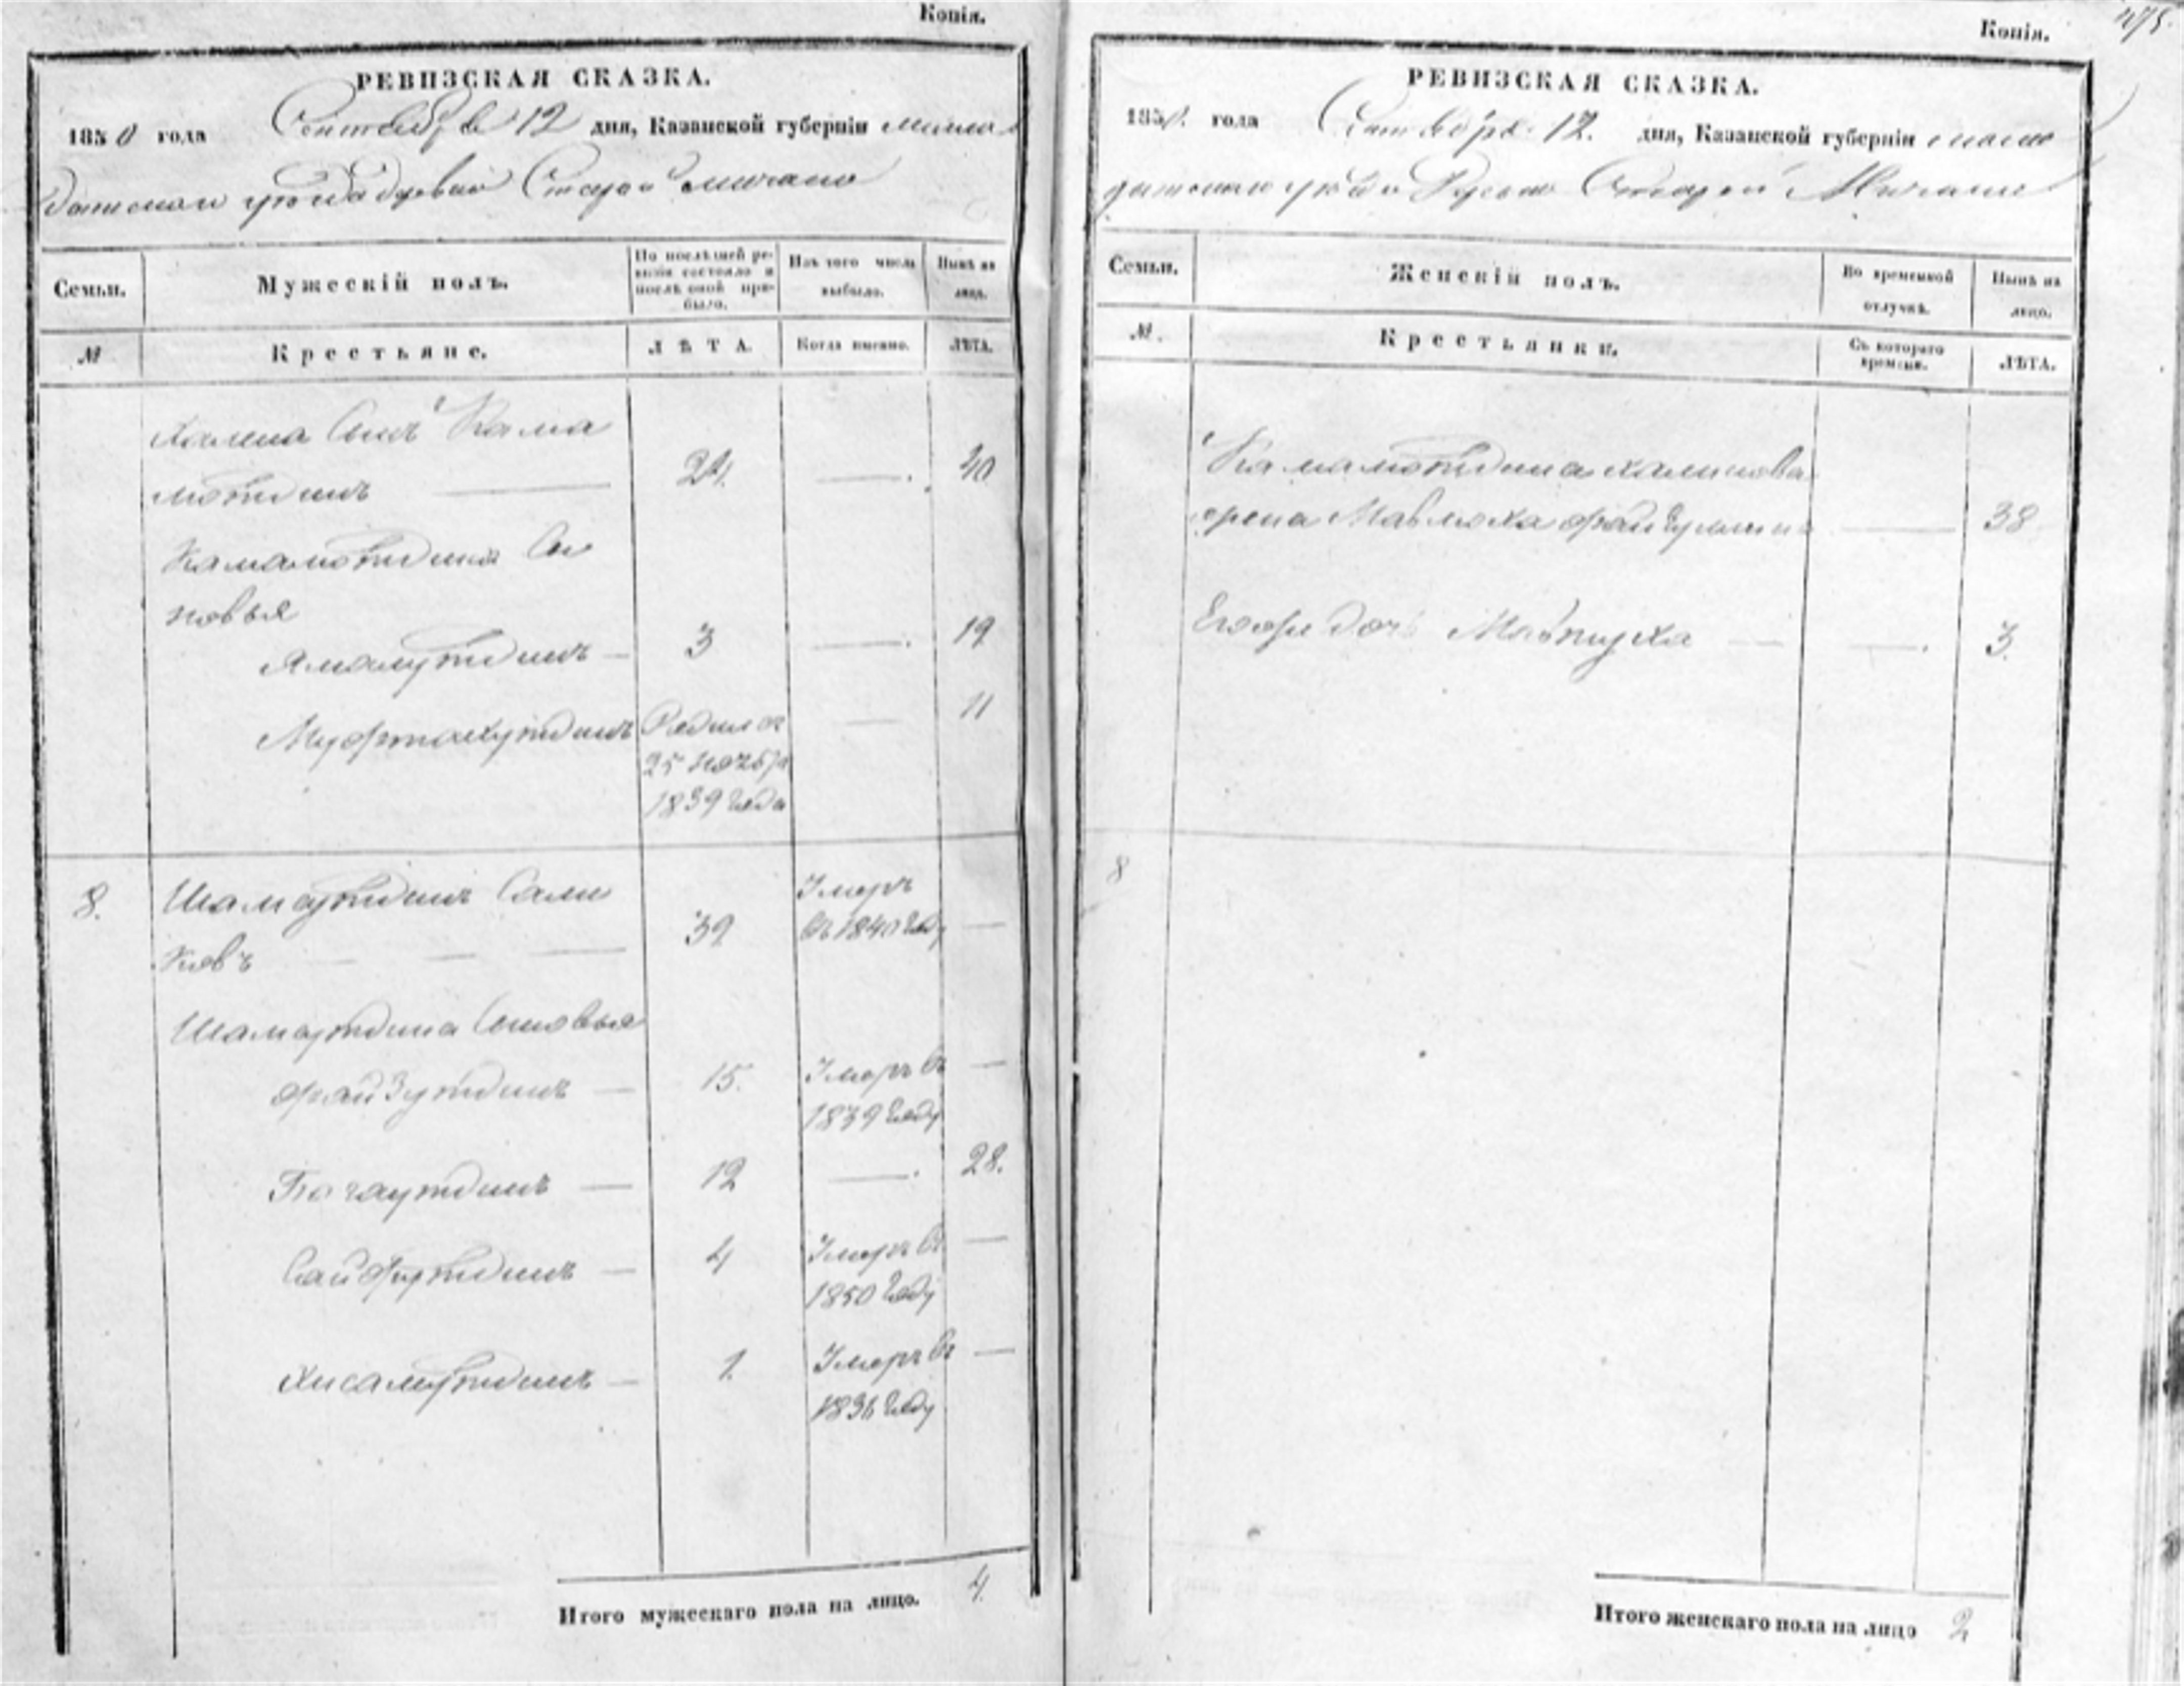 Копія.
РЕВИЗСКАЯ СКАЗКА.
1850 года Сентября 12 дня, Казанской губерніи мама
дышскаго уѣзда деревни Старой Мичани
Семьи. Мужескій полъ. По послѣдней ре-
визіи состояло и
послѣ оной при-
было. Изъ того числа
выбыло. Нынѣ на
лицо.
№ Крестьяне. ЛѢТА. Когда именно. ЛѢТА.
Халита Сынъ Кама
лютдинъ 24. — 40
Камалютдина Сы
новья
Ямалутдинъ — 3 — 19
Муфтахутдинъ Родился — 11
25 Ноября
1839 года
8. Шамсутдинъ Сали Умеръ
ховъ 39 въ 1840 году —
Шамсутдина Сыновья
Файзутдинъ — 15. Умеръ въ —
1839 году
Багаутдинъ — 12 — 28.
Сайфутдинъ — 4 Умеръ въ —
1850 году
Хисамутдинъ — 1. Умеръ въ —
1836 году
Итого мужескаго пола на лицо. 4.
Копія. 475
РЕВИЗСКАЯ СКАЗКА.
1850. года Сентября 12. дня, Казанской губерніи мама
дышскаго уѣзда Старой Мичани
Семьи. Женскій полъ. Во временной
отлучкѣ. Нынѣ на
лицо.
№. Крестьянки. Съ котораго
времени. ЛѢТА.
Камалютдина
жена Мавлюха — 38
Его дочь — 3.
8
Итого женскаго пола на лицо 2